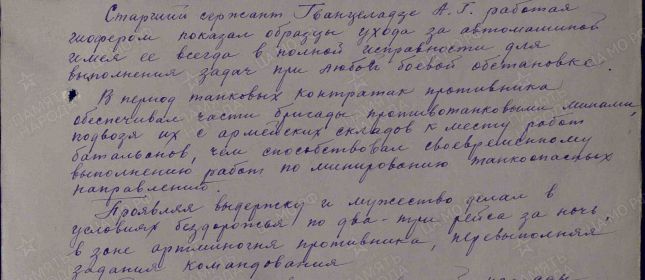 Старший сержант Гванцеладзе А.Г. работая
шофером показал образцы ухода за автомашиной
имея ее всегда в полной исправности для
выполнения задач при любой боевой обстановке.
В период танковых контратак противника
обеспечивал части бригады противотанковыми минами,
подвозя их с армейских складов к месту работ
батальонов, чем способствовал своевременному
выполнению работ по минированию танкоопасных
направлений.
Проявляя выдержку и мужество делал в
условиях бездорожья по два-три рейса за ночь,
в зоне артминогня противника, перевыполняя
задания командования